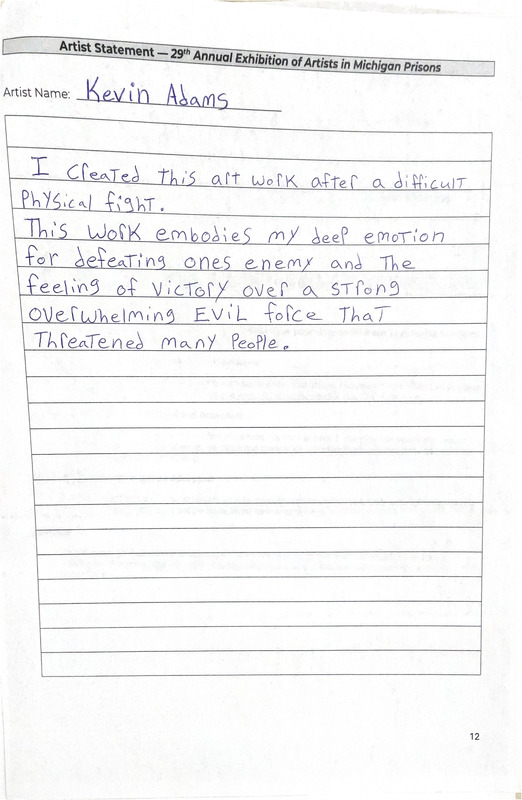 Artist Statement — 29th Annual Exhibition of Artists in Michigan Prisons
Artist Name: Kevin Adams
I created this art work after a difficult
Physical fight.
This work embodies my deep emotion
for defeating ones enemy and The
feeling of victory over a strong
overwhelming EviL force that
Threatened many People.
12